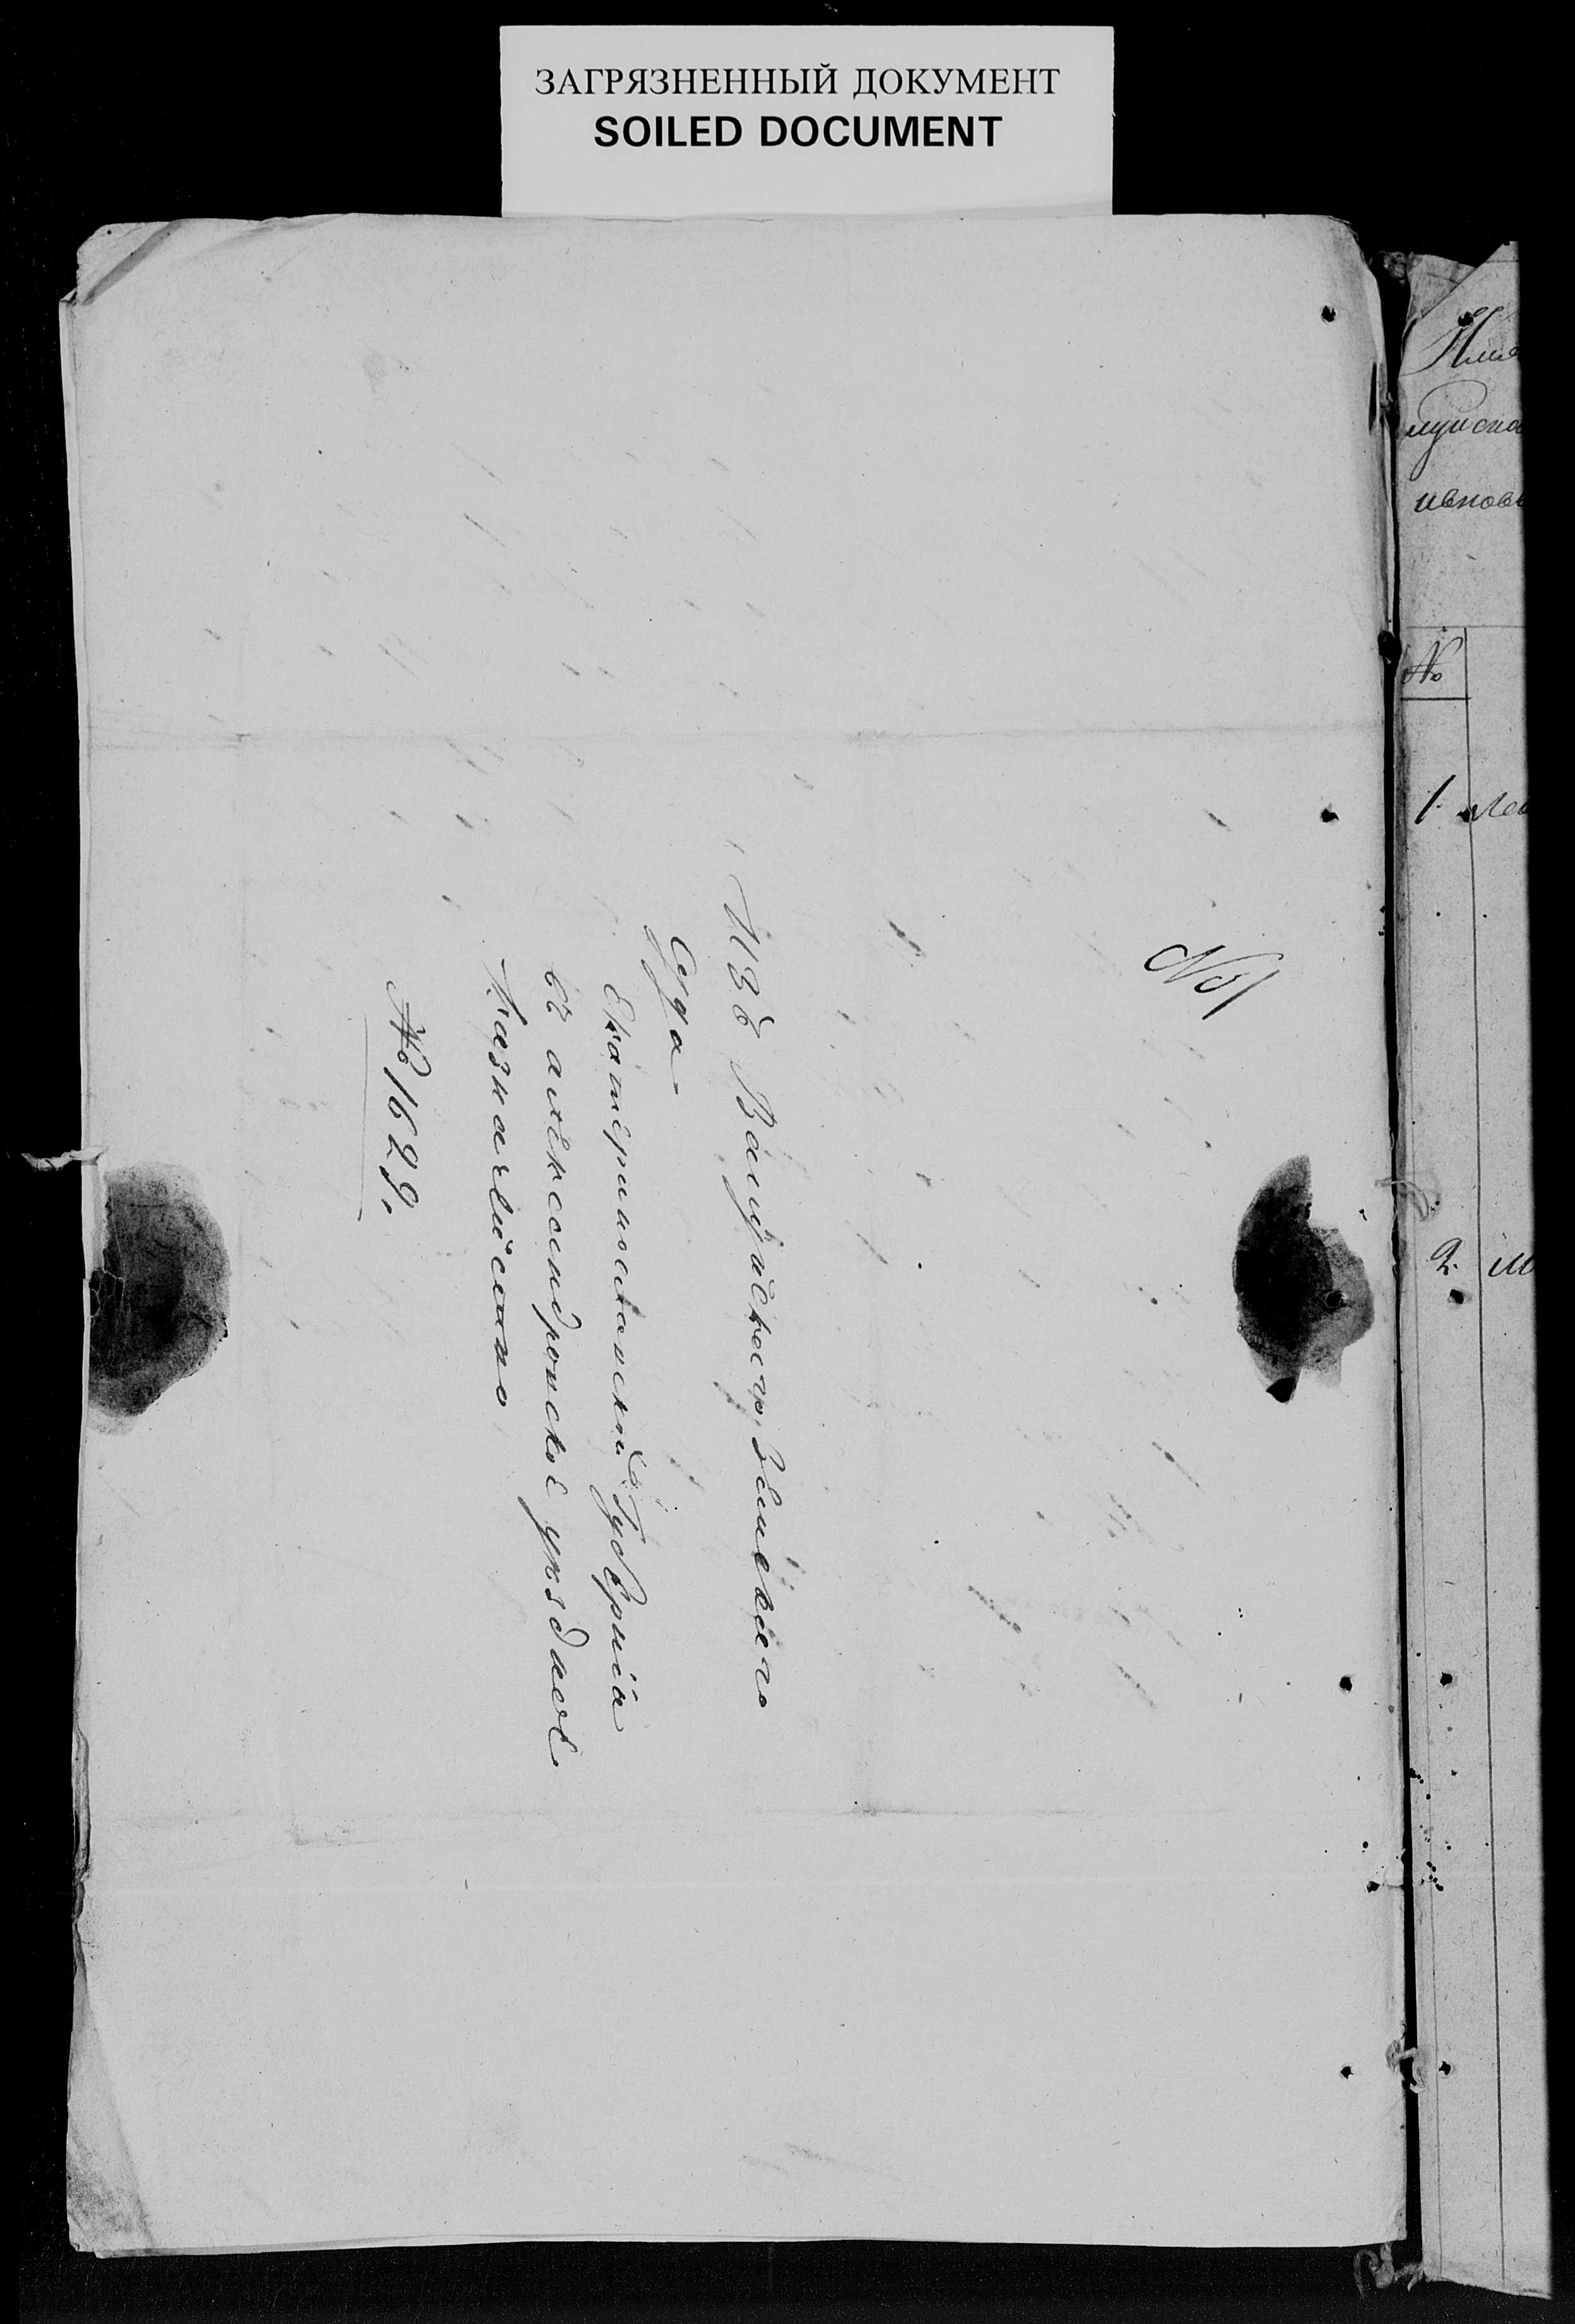 ЗАГРЯЗНЕННЫЙ ДОКУМЕНТ
SOILED DOCUMENT
№1
Изъ Валуйскаго Земскаго
Суда
Екатеринославской Губерніи
въ александровское уездное
Казначейство
№ 1629.
№
1
2.